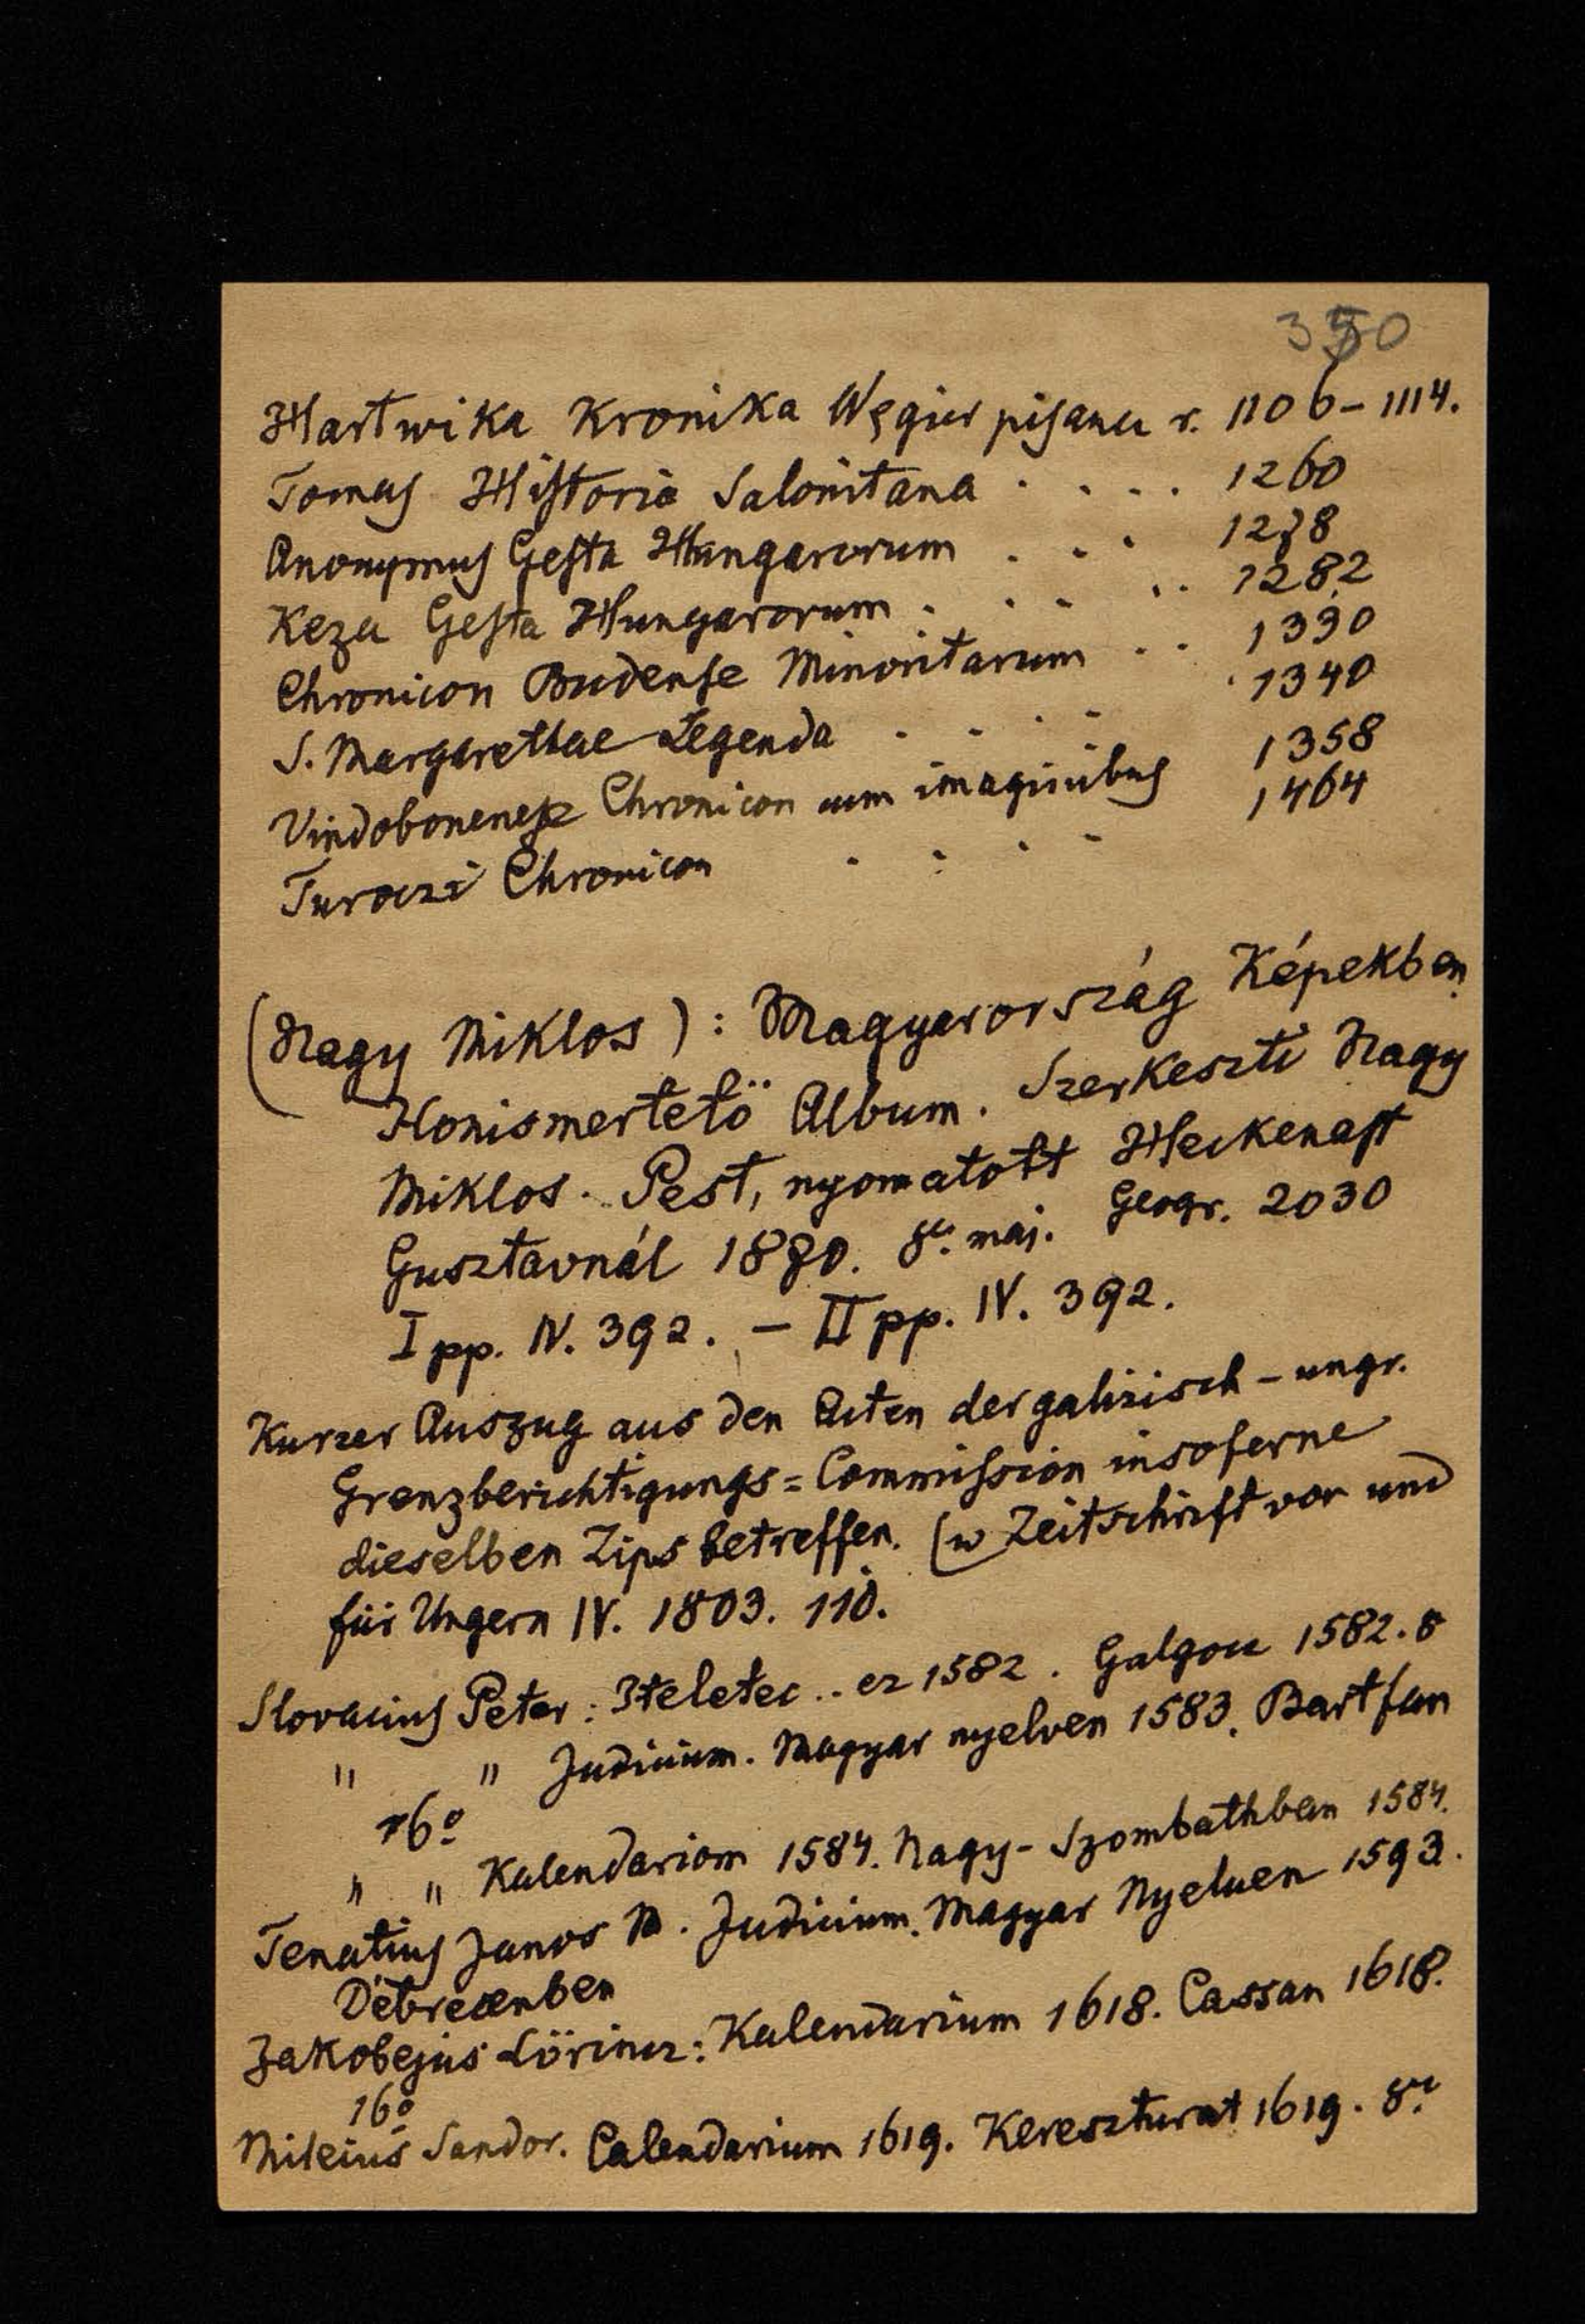 350
Hartwika Kronika Węgier pisana r. 1106-1114.
Tomas Historia Salonitana . . . . 1260
Anonymus Gesta Hungarorum . . . 1278
Keza Gesta Hungarorum . . . . . 1282
Chronicon Budense Minoritarum . . 1330
S. Margarethae Legenda . . . . . 1340
Vindobonense Chronicon cum imaginibus 1358
Turoczi Chronicon . . . . 1464
(Nagy Miklos): Magyarország Képekben
Honismertetö Album. Szerkeszti Nagy
Miklos. Pest, nyomatott Heckenast
Gusztavnál 1870. 8o. maj. Geogr. 2030
I pp. IV. 392. - II pp. IV. 392.
Kurzer Auszug aus den Acten der galizisch-ungr.
Grenzberichtigungs=Commission insoferne
dieselben Zips betreffen. (w Zeitschrift von und
für Ungern IV. 1803. 110.
Slovacius Peter: Iteletec .. ez 1582. Galgoc 1582. 8
" " Judicium. Magyar nyelven 1583. Bartfan
16o
" " Kalendariom 1584. Nagy-Szombathban 1584.
Tenatius Janos M. Judicium. Magyar Nyeluen 1593.
Debrecenben
Jakobejus Lörincz: Kalendarium 1618. Cassan 1618.
16o
Sandor. Calendarium 1619. Kereszturat 1619. 8o.